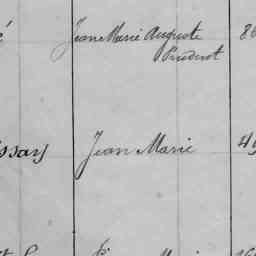 é Jean Marie Auguste 86
Prudent
ssary Jean Marie 49